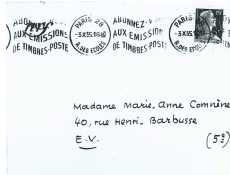 ABONNEZ-VOUS
AUX EMISSIONS
DE TIMBRES-POSTE
PARIS 28
R. DES ECOLES
ABONNEZ-VOUS
AUX EMISSIONS
DE TIMBRES-POSTE
PARIS 28
R. DES ECOLES
Madame Marie-Anne Comnène
40, rue Henri-Barbusse
E.V. (5e)